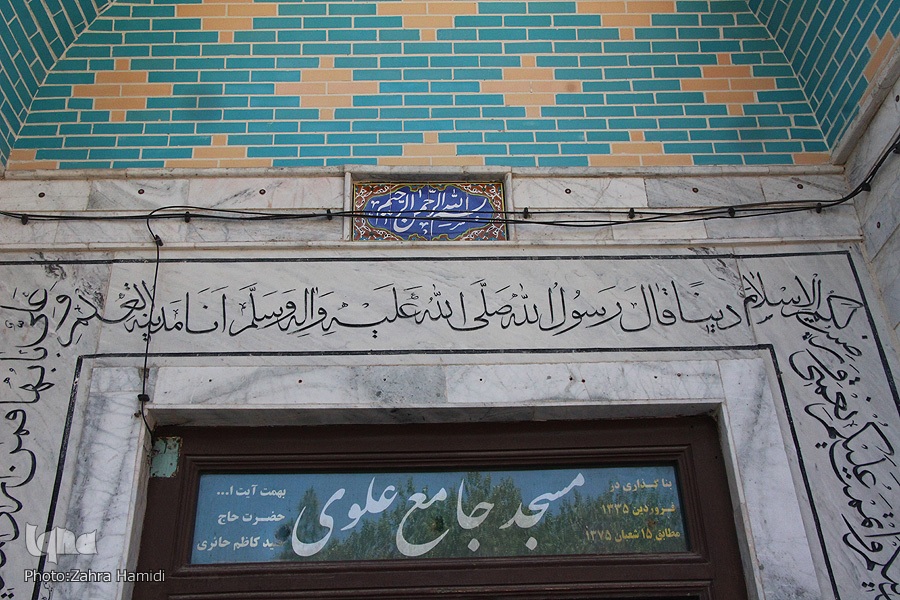 بسم الله الرحمن الرحیم
علیکم نعمتی و رضیت لکم الاسلام دینا قال رسول الله صلی الله علیه و آله و سلم انا مدینة العلم و علی بابها فمن
مسجد جامع علوی
بنا گذاری در
فروردین ۱۳۳۵
مطابق ۱۵ شعبان ۱۳۷۵
بهمت آیت ا...
حضرت حاج
سید کاظم حائری
iqna
Photo:Zahra Hamidi